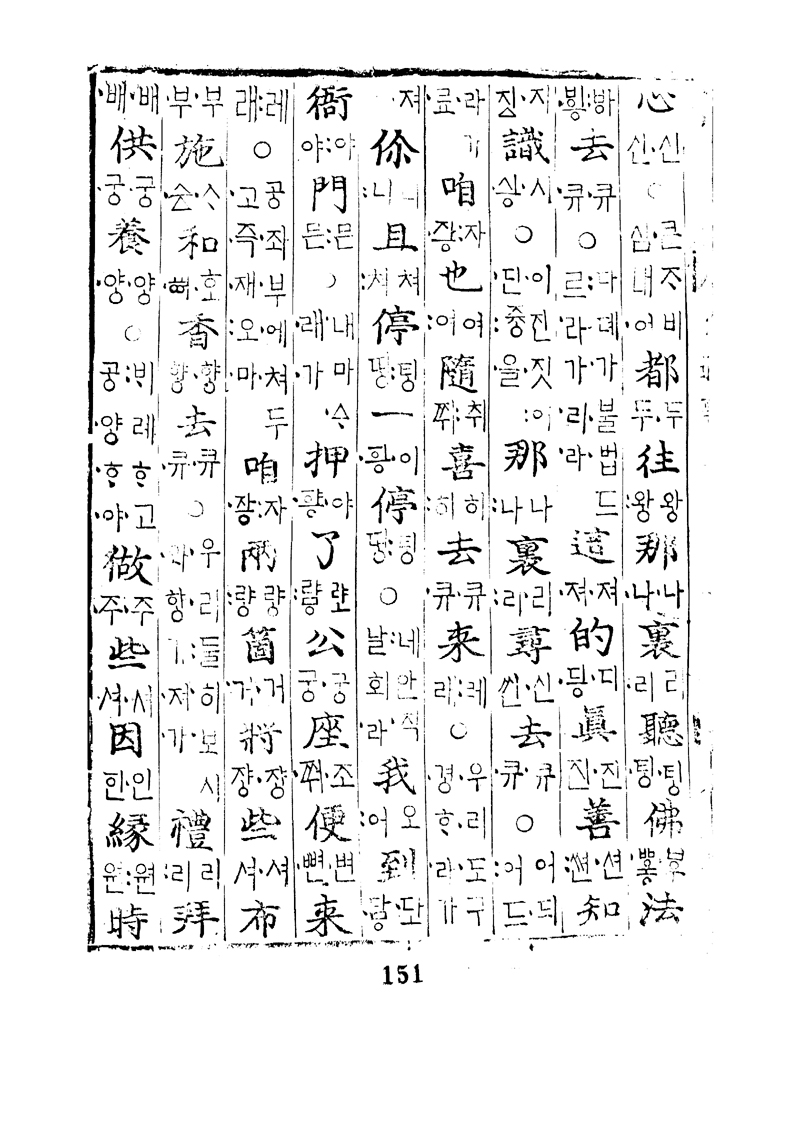 心 신신 ○ 큰ᄌᆞ비심내여 都 두두 往 왕왕 那 나나 裏 리리 聽 팅팅 佛 뿛부 法
방하 去 큐큐 ○ 다뎌가불법드르라가리라 這 져져 的 딩디 眞 진진 善 쎤션 知
징지 識 싱시 ○ 이진짓이단즁을 那 나나 裏 리리 尋 씬신 去 큐큐 ○ 어듸어드
라가료 咱 쟝자 也 여여 隨 쒸취 喜 히히 去 큐큐 來 래레 ○ 우리도구경ᄒᆞ라가
져 你 니니 且 쳐쳐 停 띵팅 一 ᅙᅵᇰ이 停 띵팅 ○ 네안직날회라 我 어오 到
衙 야야 門 믄믄 ○ 내마ᅀᆞ래가 押 햐ᇰ야 了 公 궁궁 座 쭤조 便 뼌변 來
래레 ○ 공좌부에쳐두고즉재오마 咱 쟝자 兩 량량 箇 거거 將 쟝쟝 些 셔셔 布
부부 施 和 香 향향 去 큐큐 ○ 우리둘히보시와향가져가 禮 리리 拜
배배 供 궁궁 養 양양 ○ 비례ᄒᆞ고공양ᄒᆞ야 做 주주 些 셔셔 因 한인 緣 원원 時
151